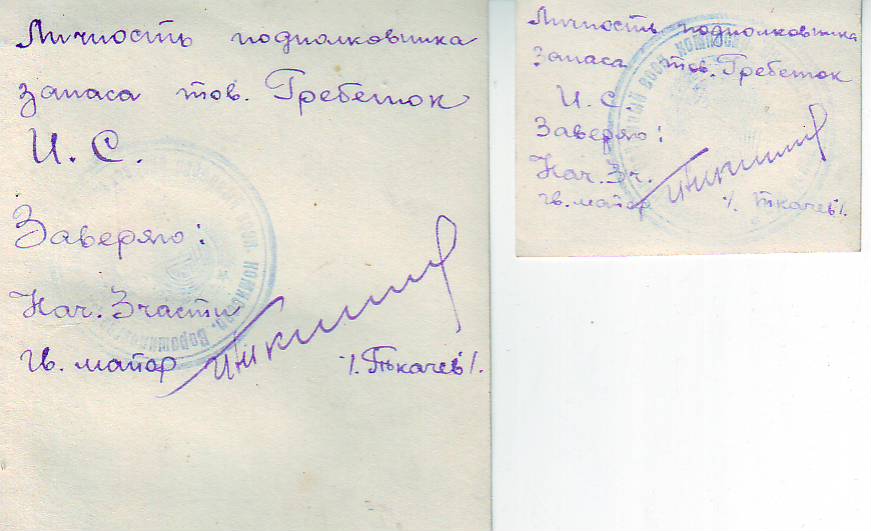 Личность подполковника
запаса тов. Гребенюк
И. С.
Заверяю:
Нач. 3 части
гв. майор /. Ткачев /.
Личность подполковника
запаса тов. Гребенюк
И. С.
Заверяю:
Нач. 3 ч.
гв. майор /. Ткачев /.